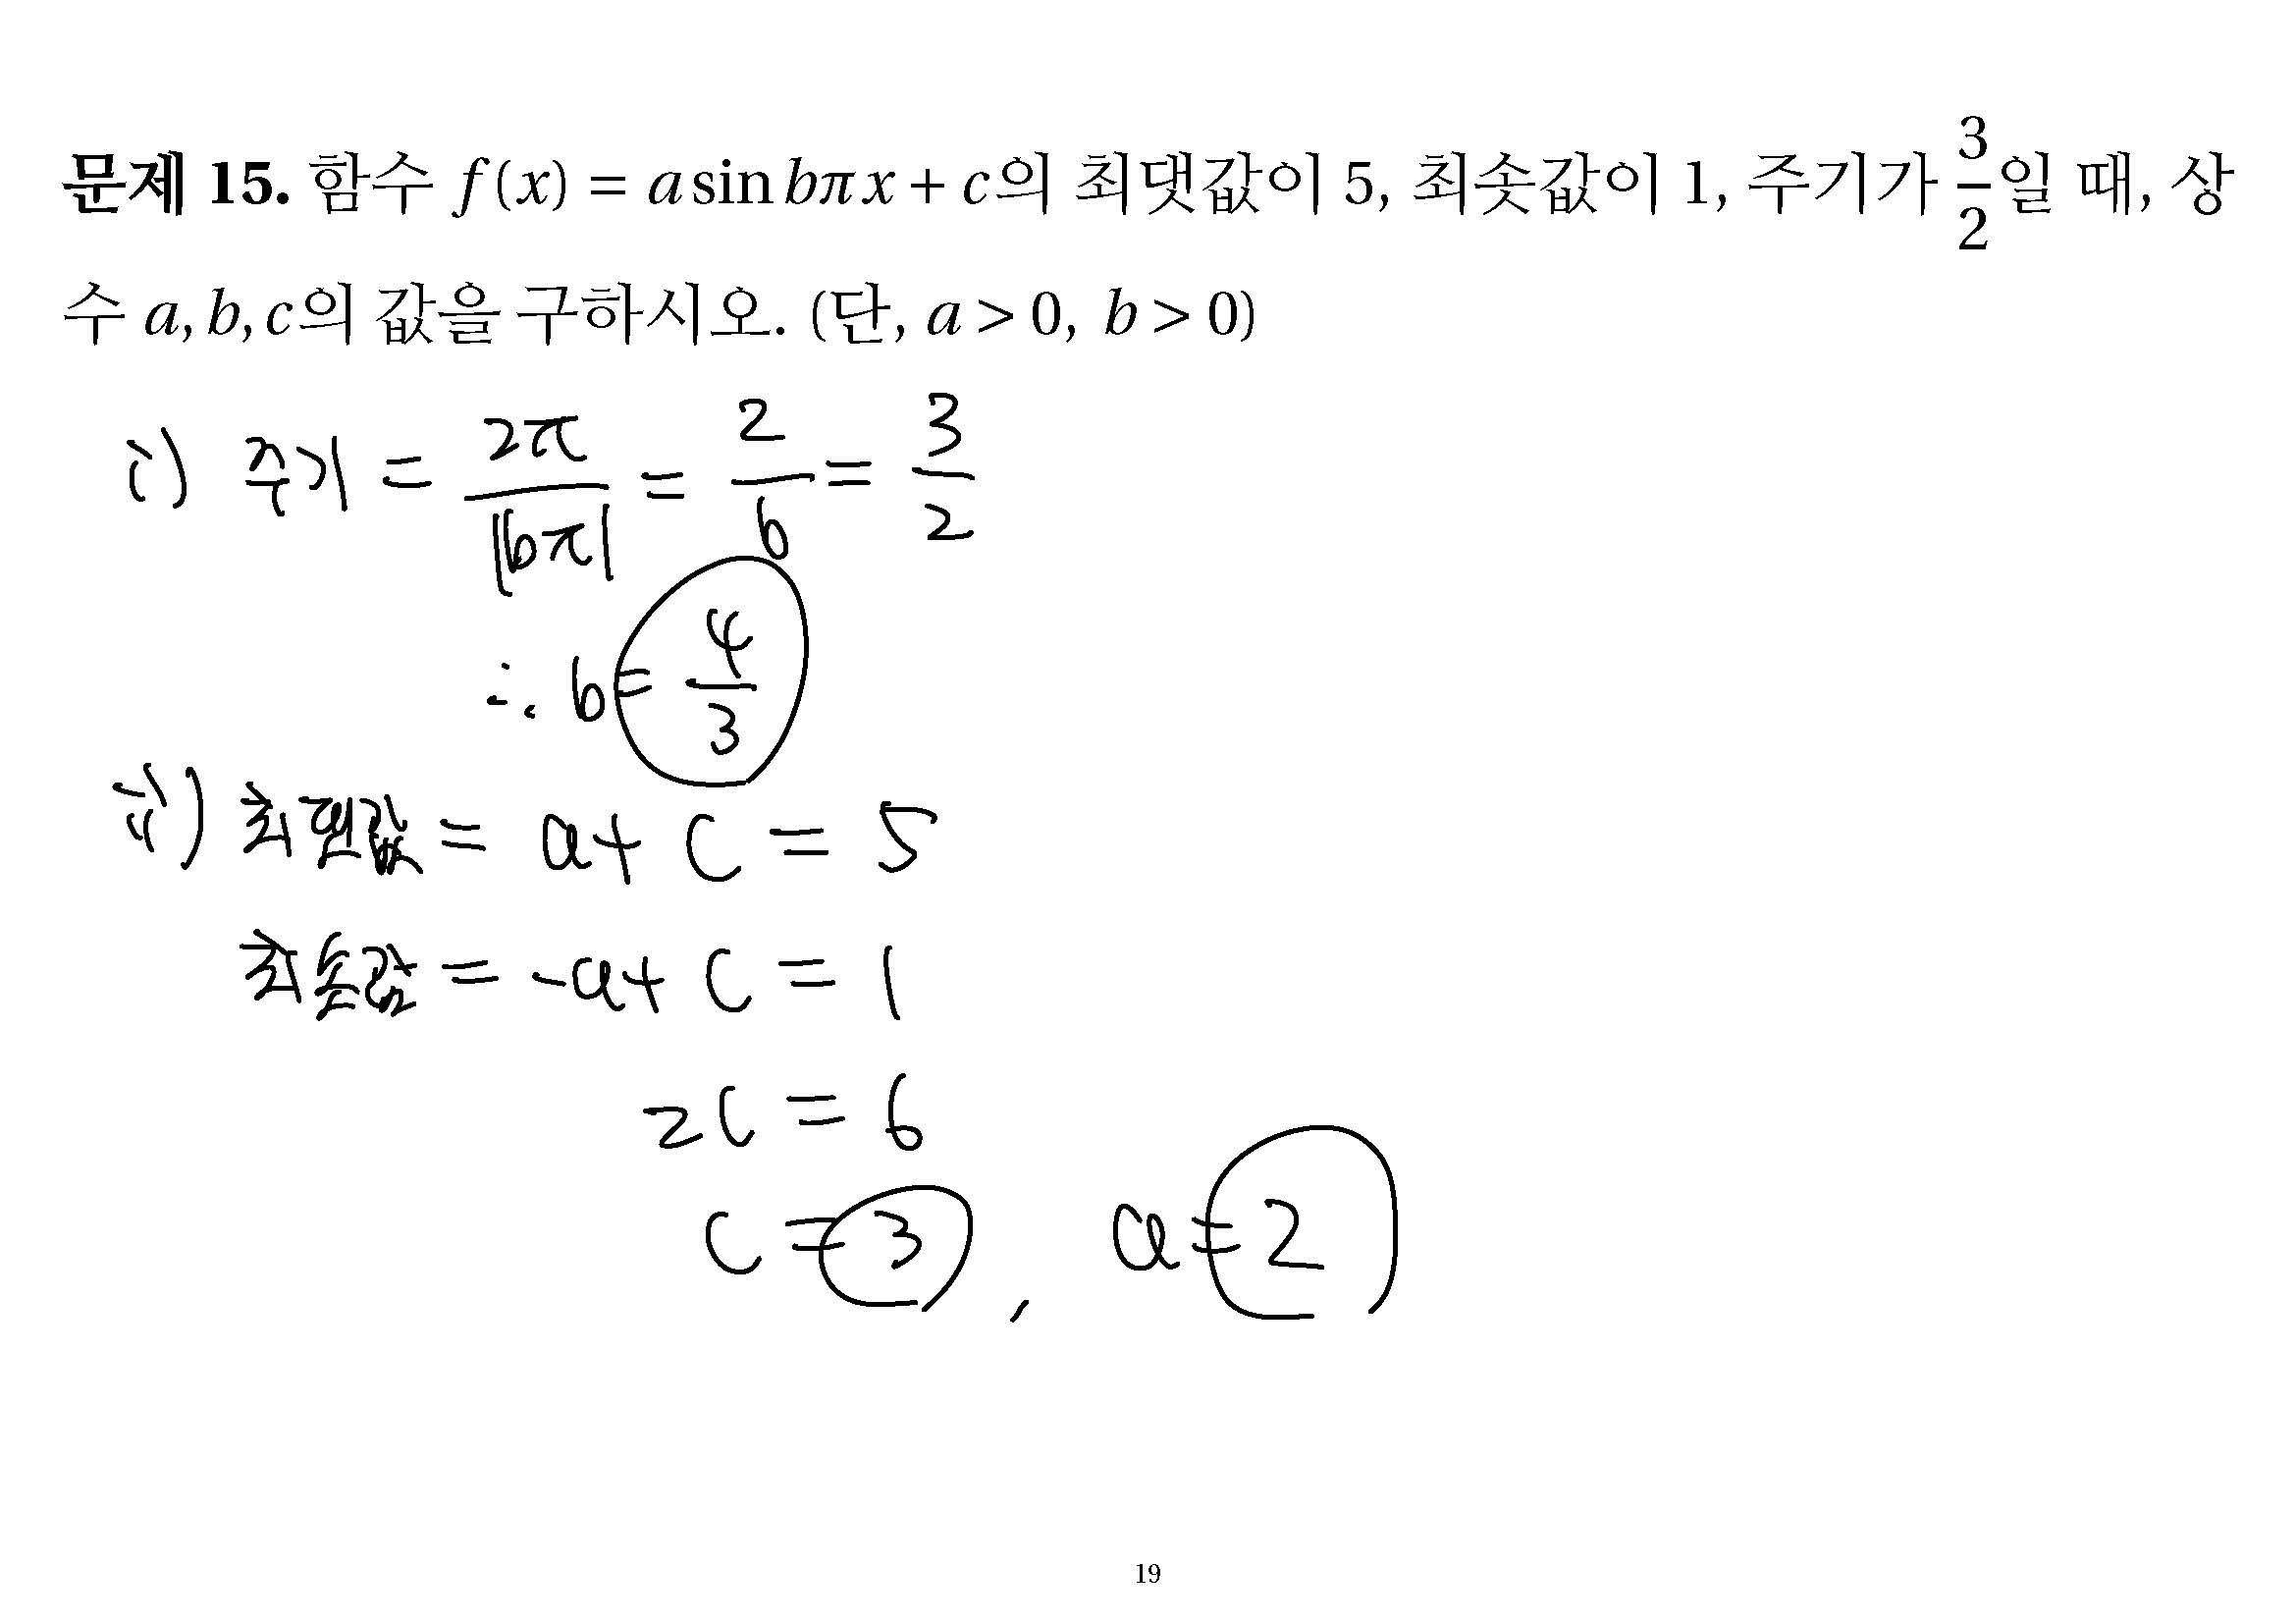 문제 15. 함수 f(x) = a sin bπx + c의 최댓값이 5, 최솟값이 1, 주기가 3/2일 때, 상
수 a, b, c의 값을 구하시오. (단, a > 0, b > 0)
i) 주기 = 2π/|bπ| = 2/b = 3/2
∴ b = 4/3
ii) 최댓값 = a + c = 5
최솟값 = -a + c = 1
2c = 6
c = 3, a = 2
19